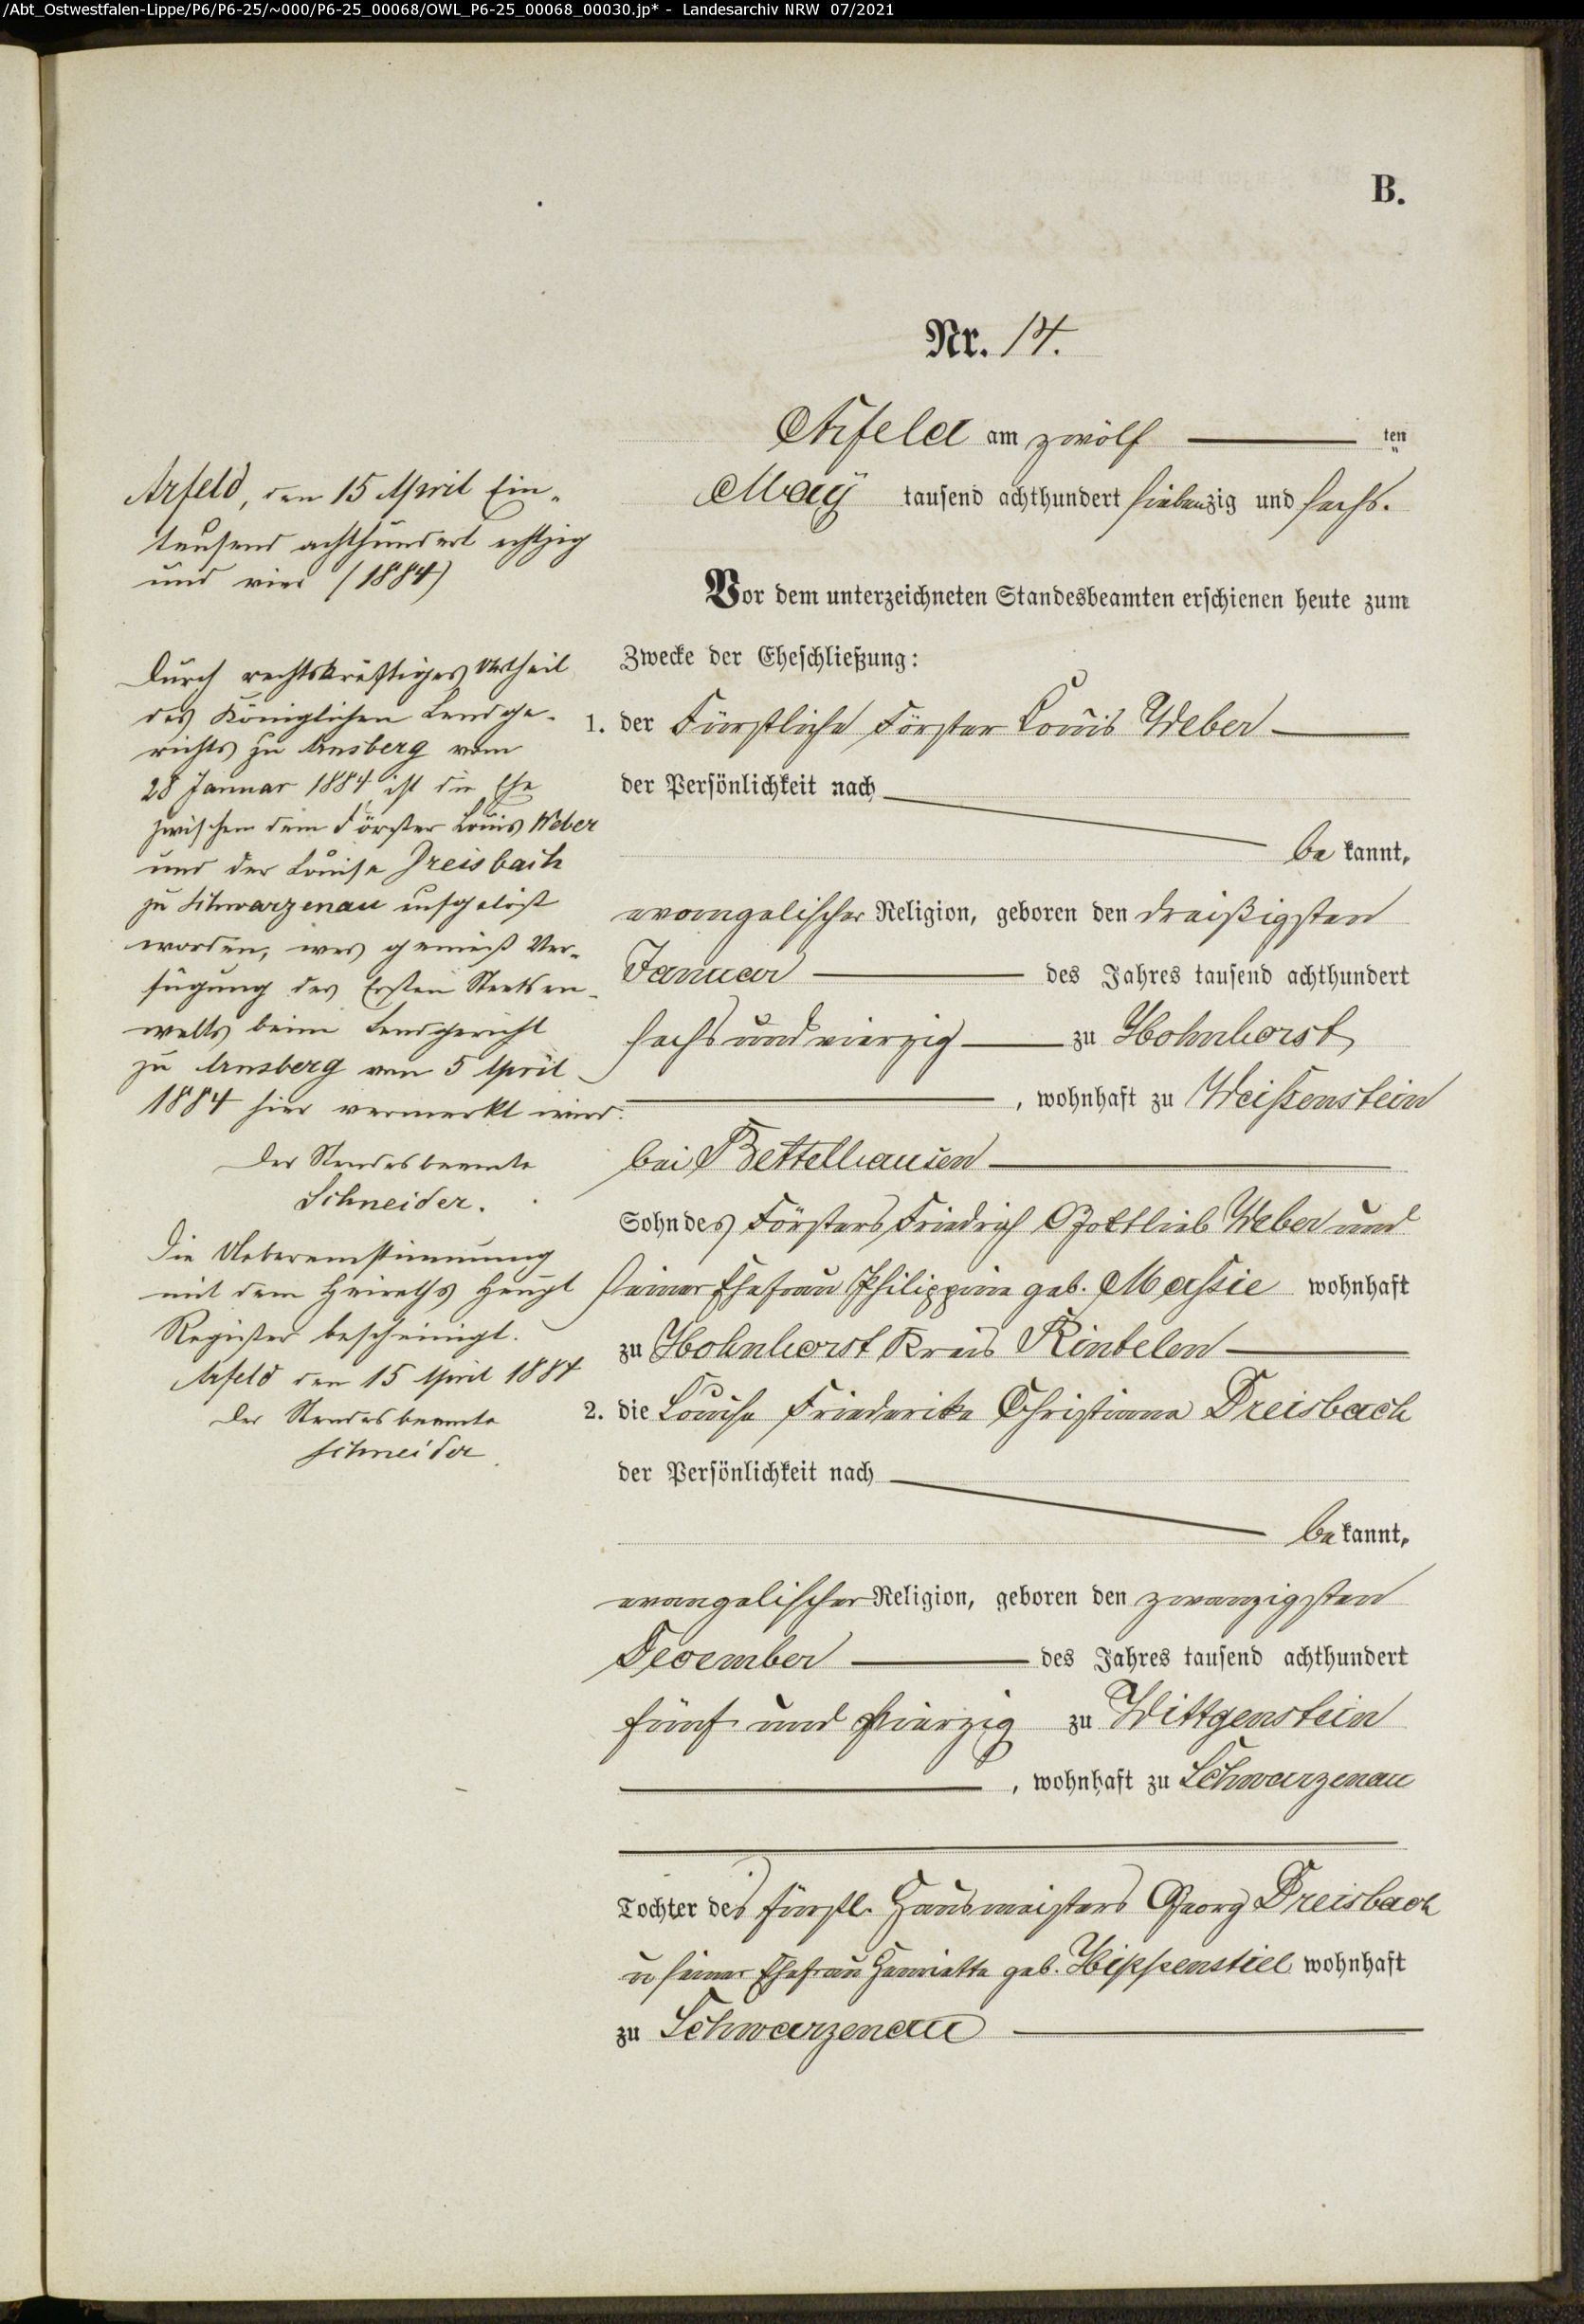 /Abt_Ostwestfalen-Lippe/P6/P6-25/~000/P6-25_00068/OWL_P6-25_00068_00030.jp* - Landesarchiv NRW 07/2021
B.
Nr. 14.
Arfeld am zwölf ten
May tausend achthundert siebenzig und sechs.
Vor dem unterzeichneten Standesbeamten erschienen heute zum
Zwecke der Eheschließung:
1. der Fürstliche Förster Louis Weber
der Persönlichkeit nach
be kannt,
evangelischer Religion, geboren den dreißigsten
Januar des Jahres tausend achthundert
sechs und vierzig zu Hohnhorst
, wohnhaft zu Weißenstein
bei Bettelhausen
Sohn des Försters Friedrich Gottlieb Weber und
seiner Ehefrau Philippine geb. Massie wohnhaft
zu Hohnhorst Kreis Rintelen
2. die Louise Friederike Christiane Dreisbach
der Persönlichkeit nach
be kannt,
evangelischer Religion, geboren den zwanzigsten
December des Jahres tausend achthundert
fünf und vierzig zu Wittgenstein
, wohnhaft zu Schwarzenau
Tochter des fürstl. Hausmeisters Georg Dreisbach
u seiner Ehefrau Henriette geb. Hippenstiel wohnhaft
zu Schwarzenau
Arfeld, den 15 April Ein-
tausend achthundert achtzig
und vier (1884)
Durch rechtskräftiges Urtheil
des Königlichen Landge-
richts zu Arnsberg vom
28 Januar 1884 ist die Ehe
zwischen dem Förster Louis Weber
und der Louise Dreisbach
zu Schwarzenau aufgelöst
worden, was gemäß Ver-
fügung des Ersten Staatsan-
walts beim Landgericht
zu Arnsberg vom 5 April
1884 hier vermerkt wird.
Der Standesbeamte
Schneider.
Die Uebereinstimmung
mit dem Heiraths Haupt
Register bescheinigt.
Arfeld den 15 April 1884
Der Standesbeamte
Schneider